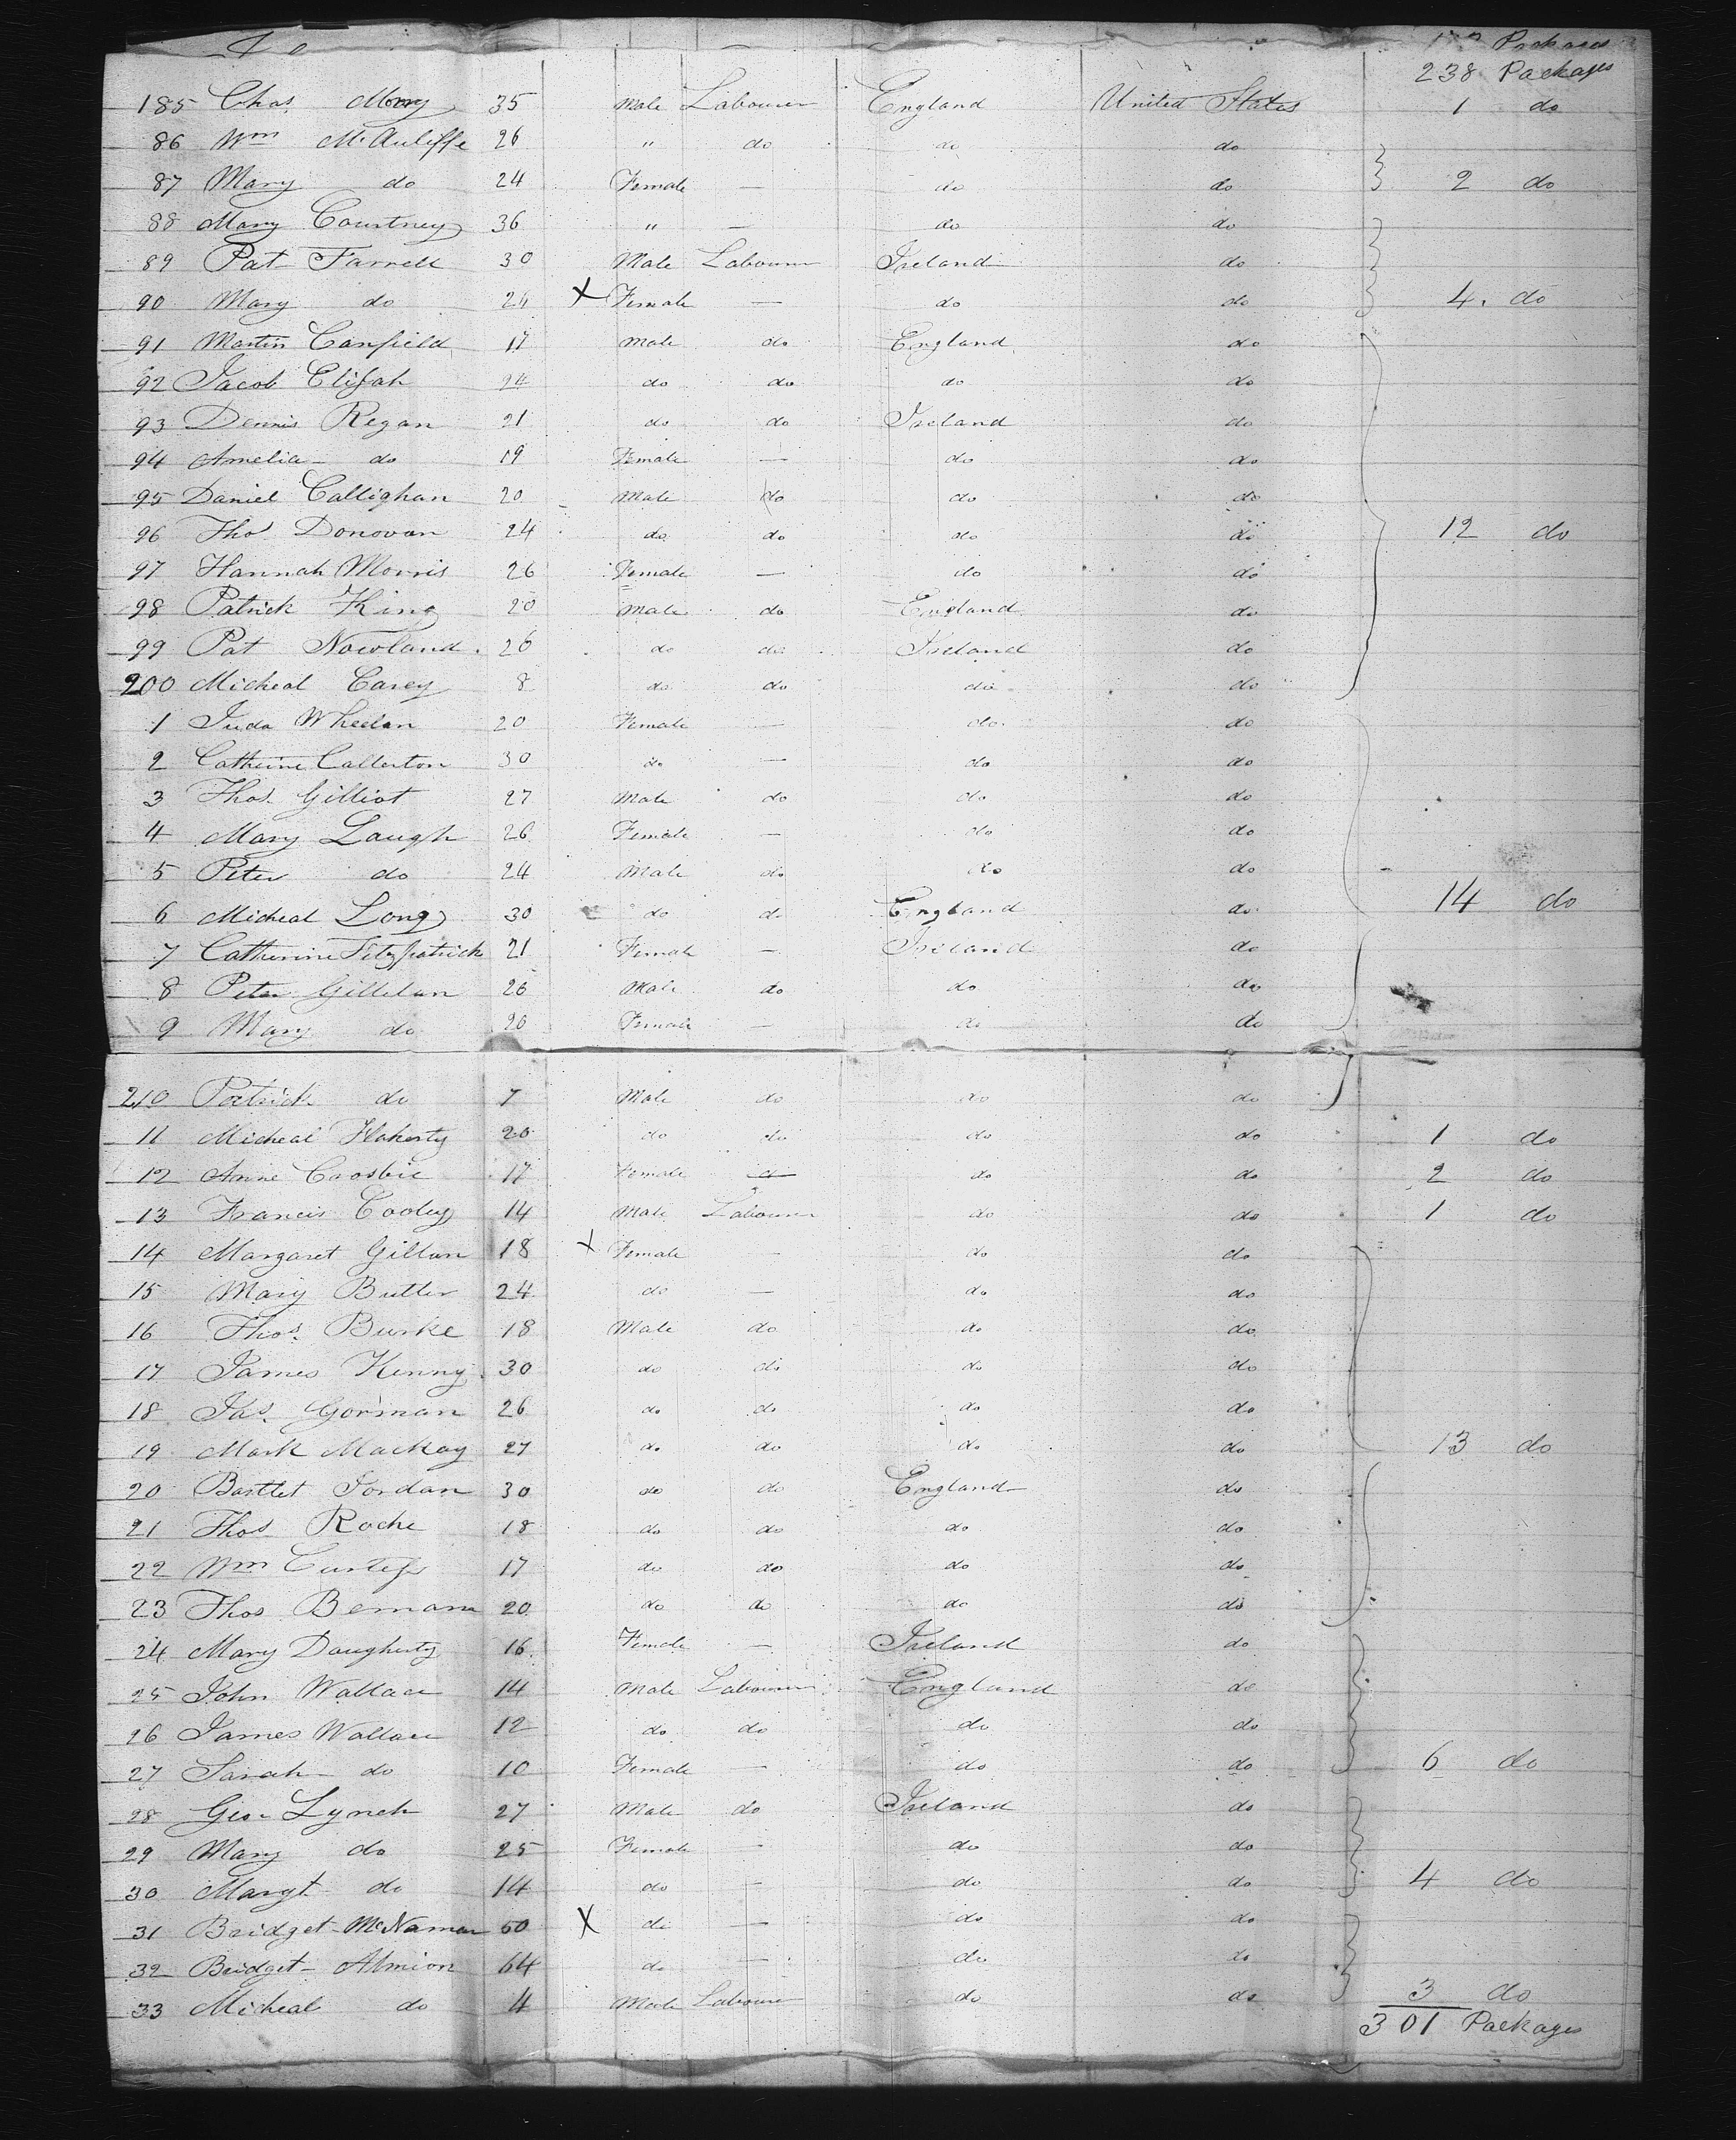 Packages
238 Packages
185 Chas. Mony 35 Male Labourer England United States 1 do
86 Wm McAuliffe 26 " do do do
87 Mary do 24 Female — do do 2 do
88 Mary Courtney 36 " — do do
89 Pat Farrell 30 Male Labourer Ireland do
90 Mary do 24 X Female — do do 4. do
91 Martin Canfield 17 Male do England do
92 Jacob Elijah 24 do do do do
93 Dennis Regan 21 do do Ireland do
94 Amelia do 19 Female — do do
95 Daniel Callighan 20 Male do do do
96 Thos Donovan 24 do do do do 12 do
97 Hannah Morris 26 Female — do do
98 Patrick King 20 Male do England do
99 Pat Nowland. 26 do do Ireland do
200 Micheal Carey 8 do do do do
1 Juda Wheelan 20 Female — do do
2 Catherine Callerton 30 do — do do
3 Thos. Gilliot 27 Male do do do
4 Mary Laugh 26 Female — do do
5 Peter do 24 Male do do do
6 Micheal Long 30 do do England do 14 do
7 Catherine Fitzpatrick 21 Female — Ireland do
8 Peter Gillelan 26 Male do do do
9 Mary do 20 Female — do do
210 Patrick do 7 Male do do do
11 Micheal Flaherty 20 do do do do 1 do
12 Anne Crosbie 17 Female do do 2 do
13 Francis Cooley 14 Male Labourer do do 1 do
14 Margaret Gillan 18 X Female — do do
15 Mary Butler 24 do — do do
16 Thos. Burke 18 Male do do do
17 James Kenny. 30 do do do do
18 Jas. Gorman 26 do do do do
19 Mark Mackay 27 do do do do 13 do
20 Bartlet Jordan 30 do do England do
21 Thos Roche 18 do do do do
22 Wm Curtess 17 do do do do
23 Thos Bemann 20 do do do do
24 Mary Daugherty 16 Female — Ireland do
25 John Wallace 14 Male Labourer England do
26 James Wallace 12 do do do do
27 Sarah do 10 Female — do do 6 do
28 Geo. Lynch 27 Male do Ireland do
29 Mary do 25 Female — do do
30 Margt. do 14 do — do do 4 do
31 Bridget McNamar 60 X do — do do
32 Bridget Almion 64 do — do do
33 Micheal do 4 Male Labourer do do 3 do
301 Packages